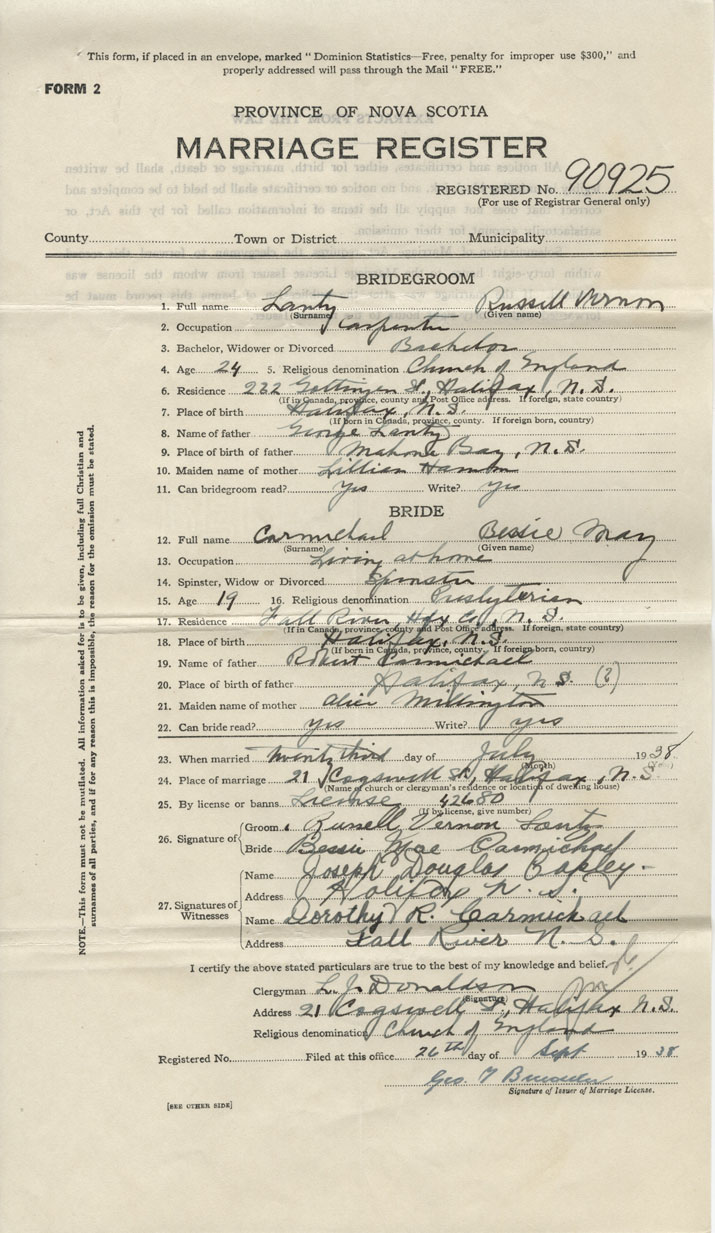 This form, if placed in an envelope, marked "Dominion Statistics—Free, penalty for improper use $300," and
properly addressed will pass through the Mail "FREE."
FORM 2
PROVINCE OF NOVA SCOTIA
MARRIAGE REGISTER
REGISTERED No. 90925
(For use of Registrar General only)
County Town or District Municipality
BRIDEGROOM
1. Full name Lanty Russell Vernon
(Surname) (Given name)
2. Occupation Carpenter
3. Bachelor, Widower or Divorced Bachelor
4. Age 24 5. Religious denomination Church of England
6. Residence 232 Gottingen St, Halifax, N.S.
(If in Canada, province, county and Post Office address. If foreign, state country)
7. Place of birth Halifax, N.S.
(If born in Canada, province, county. If foreign born, country)
8. Name of father George Lanty
9. Place of birth of father Mahone Bay, N.S.
10. Maiden name of mother Lillian
11. Can bridegroom read? yes Write? yes
BRIDE
12. Full name Carmichael Bessie May
(Surname) (Given name)
13. Occupation Living at home
14. Spinster, Widow or Divorced Spinster
15. Age 19 16. Religious denomination Presbyterian
17. Residence Fall River, Hfx Co, N.S.
(If in Canada, province, county and Post Office address. If foreign, state country)
18. Place of birth Halifax, N.S.
(If born in Canada, province, county. If foreign born, country)
19. Name of father Robert Carmichael
20. Place of birth of father Halifax, N S (?)
21. Maiden name of mother Alice Millington
22. Can bride read? yes Write? yes
23. When married twenty third day of July 1938
(Month)
24. Place of marriage 21 Cogswell St, Halifax, N.S.
(Name of church or clergyman's residence or location of dwelling house)
25. By license or banns License 42680
(If by license, give number)
26. Signature of Groom Russell Vernon Lanty
Bride Bessie Mae Carmichael
27. Signatures of Witnesses Name Joseph Douglas Oakley
Address Halifax N. S.
Name Dorothy R. Carmichael
Address Fall River N. S.
I certify the above stated particulars are true to the best of my knowledge and belief.
Clergyman L. J. Donaldson
(Signature)
Address 21 Cogswell St, Halifax N.S.
Religious denomination Church of England
Registered No. Filed at this office 26th day of Sept 1938
Geo. T
Signature of Issuer of Marriage License.
[SEE OTHER SIDE]
NOTE.—This form must not be mutilated. All information asked for is to be given, including full Christian and
surnames of all parties, and if for any reason this is impossible, the reason for the omission must be stated.